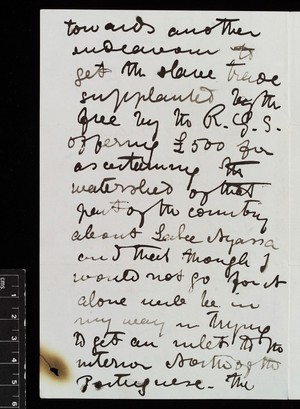 towards another
endeavour to
get the slave trade
supplanted by the
free by the R.G.S.
offering £500 for
ascertaining the
watershed of that
part of the country
about Lake Nyassa
and that though I
would not go for it
alone will be in
my way in trying
to get an inlet to the
interior North of the
Portuguese - the
CMS
1
2
3
4
5
6